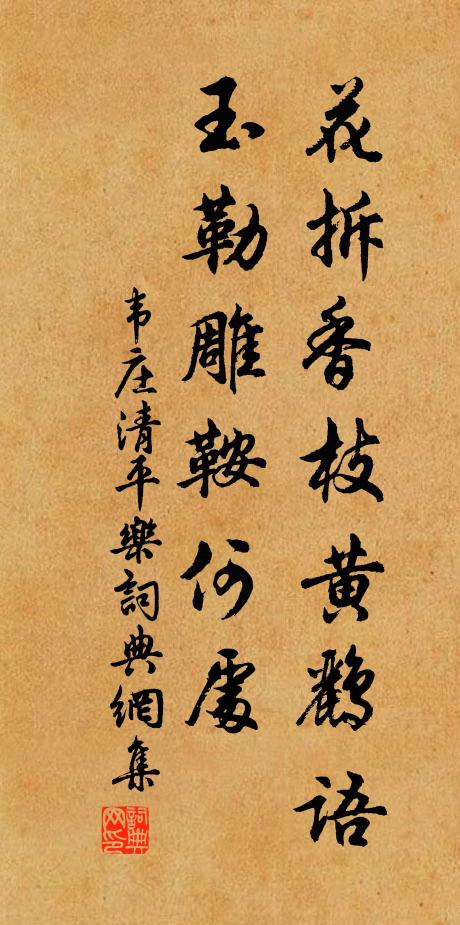 花拆香枝黄鸝語
玉勒雕鞍何處
韦庄清平樂詞典網集
詞典网印